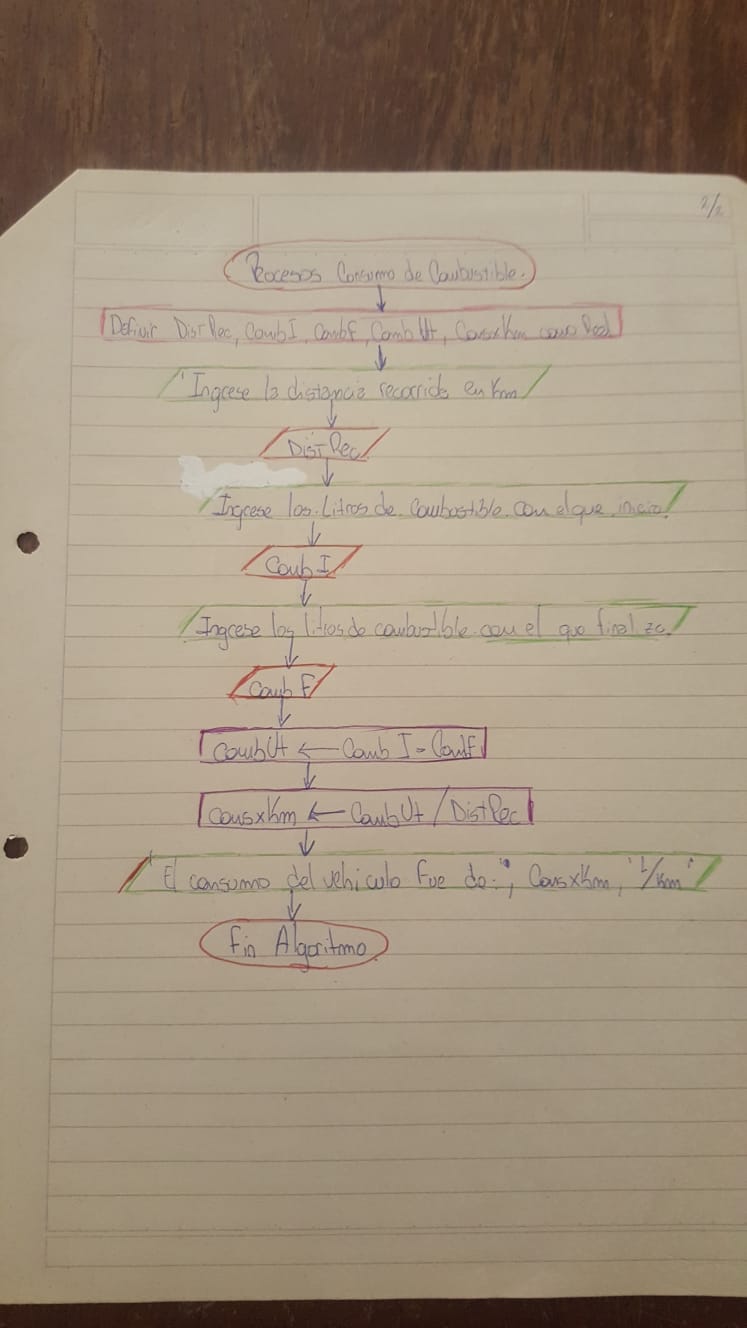 2/2
Procesos Consumo de Combustible.
Definir DistRec, CombI, CombF, CombUt, ConsxKm como Real
"Ingrese la distancia recorrida en Km
DistRec
Ingrese los Litros de Combustible con el que inicio
Comb I
Ingrese los litros de combustible con el que finalizo
Comb F
CombUt ← Comb I - CombF
ConsxKm ← CombUt / DistRec
"El consumo del vehiculo fue de:", ConsxKm, "L/Km"
Fin Algoritmo